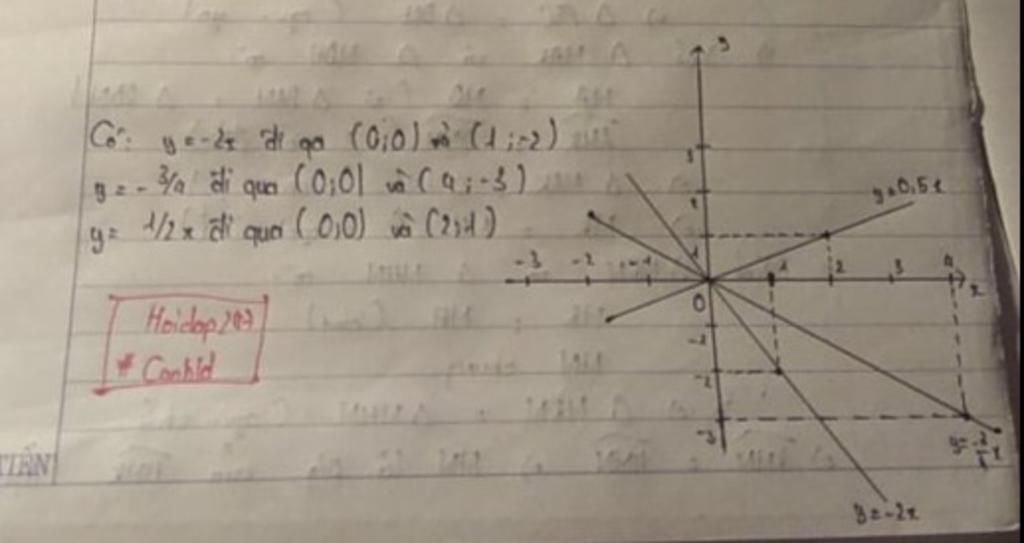 Có: y = -2x đi qa (0;0) và (1;-2)
y = - 3/4 đi qua (0;0) và (4;-3)
y = 1/2 x đi qua (0;0) và (2;1)
Hoidap247
# Canhld
TIẾN
y
3
2
1
y=0,5x
-3 -2 -1 1 2 3 4 x
0
-1
-2
-3
y=-3/4x
y=-2x